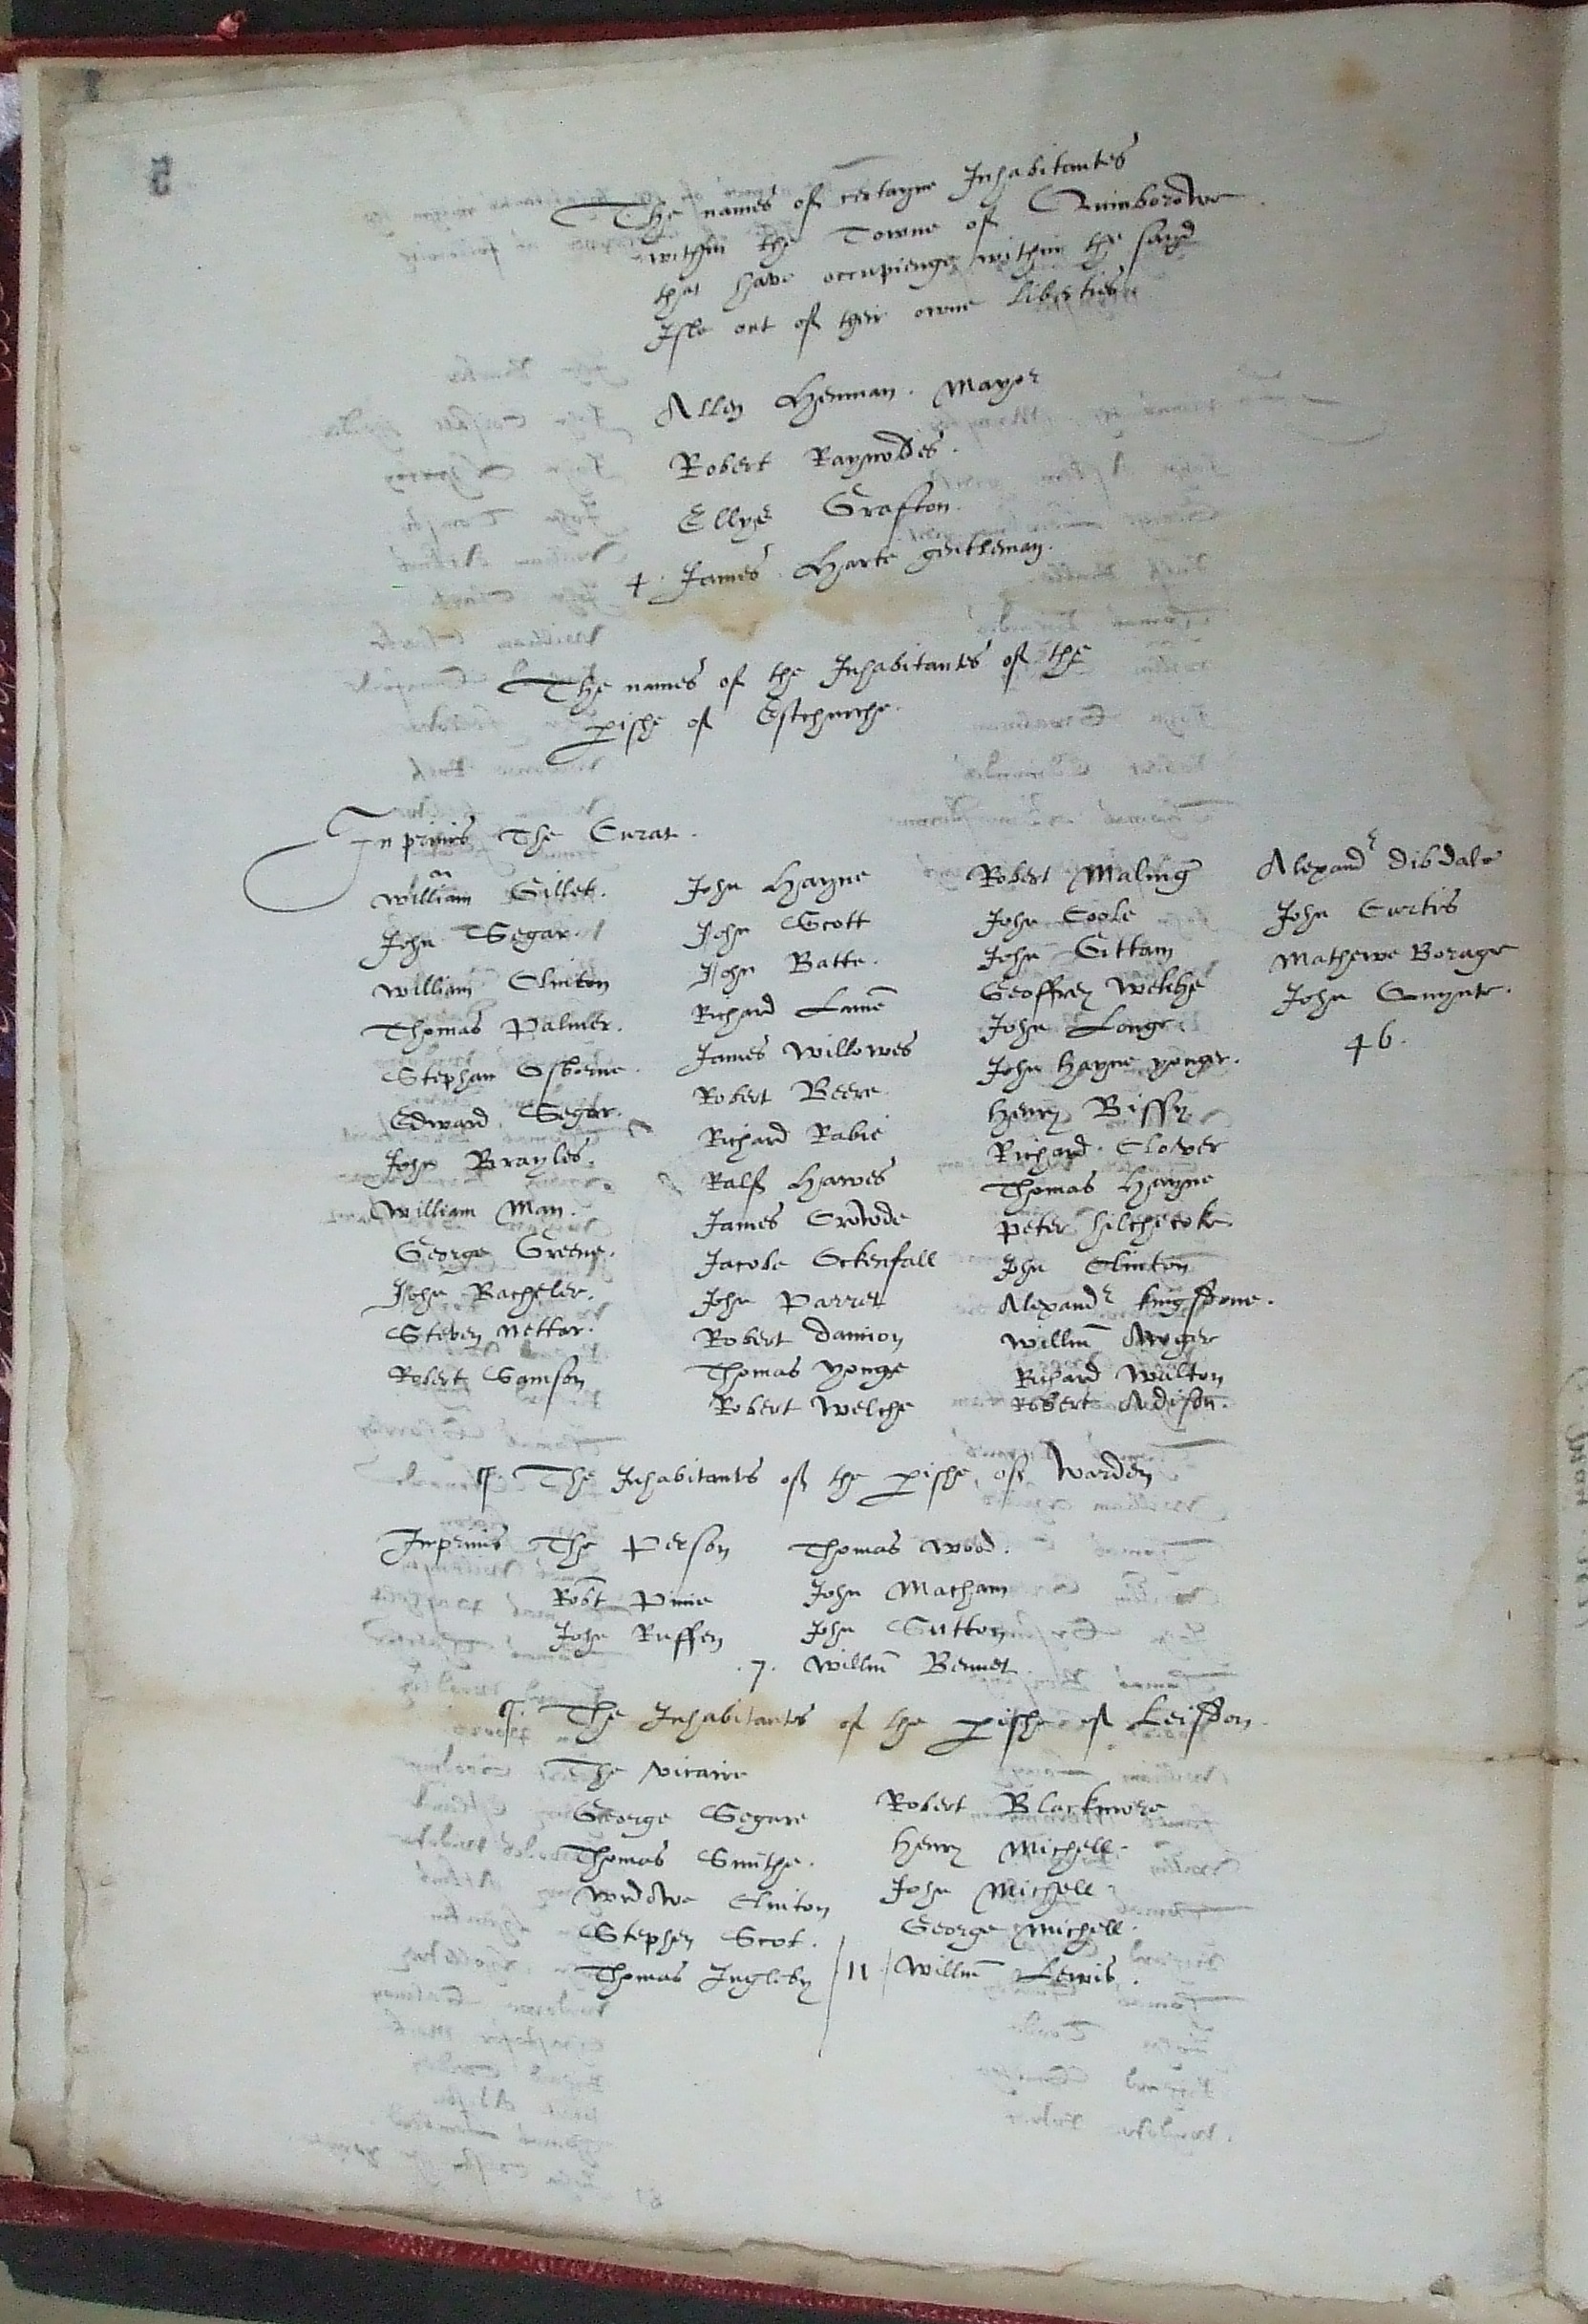 The names of certayne Inhabitantes
within the Towne of Quinborowe
that have occupienge within the sayd
Isle out of their owne liberties
Allen Henman . Mayor
Robert Raynoldes .
Ellys Grafton .
4 . James Harte gentleman .
The names of the Inhabitantes of the
pishe of Estchurche .
Inprimis The Curat .
William Gillet .
John Segar
William Clinton
Thomas Palmer .
Stephan Osborne .
Edward Segar .
John Brayles .
William Man .
George Greene .
John Bacheler .
Steven Nettar .
Robert Samson
John Hayne
John Scott
John Batte .
Richard Lame
James Willowes
Robert Beere
Richard Rabie
Ralf Hawes
James Crowde
Jacobe Ockenfall
John Parret
Robert Damion
Thomas Yonge
Robert Welche
Robert Maling
John Cople
John Gittam
Geoffrey Welche
John Longe
John Hayne yonger .
Henry Biffy
Richard . Clover
Thomas Hayne
Peter Hilchecoke .
John Clinton
Alexandr Kingstone .
Willm
Richard Walton
Robert Adison .
Alexandr Dibdale
John Curtis
Mathewe Borage
John Gwynte .
46 .
¶ The Inhabitants of the pishe of Warden
Inprimis The Person
Robt Pinie
John Ruffen
Thomas Wood .
John Macham
John Sutton
. 7 . Willm Bennet .
¶ . The Inhabitants of the pishe of Leisdon .
The vicaire
George Segare
Thomas Smithe .
Widowe Clinton
Stephen Scot .
Thomas Ingleby
Robert Blackmore
Henry Michell .
John Michell
George Michell .
11 Willm Lewis .